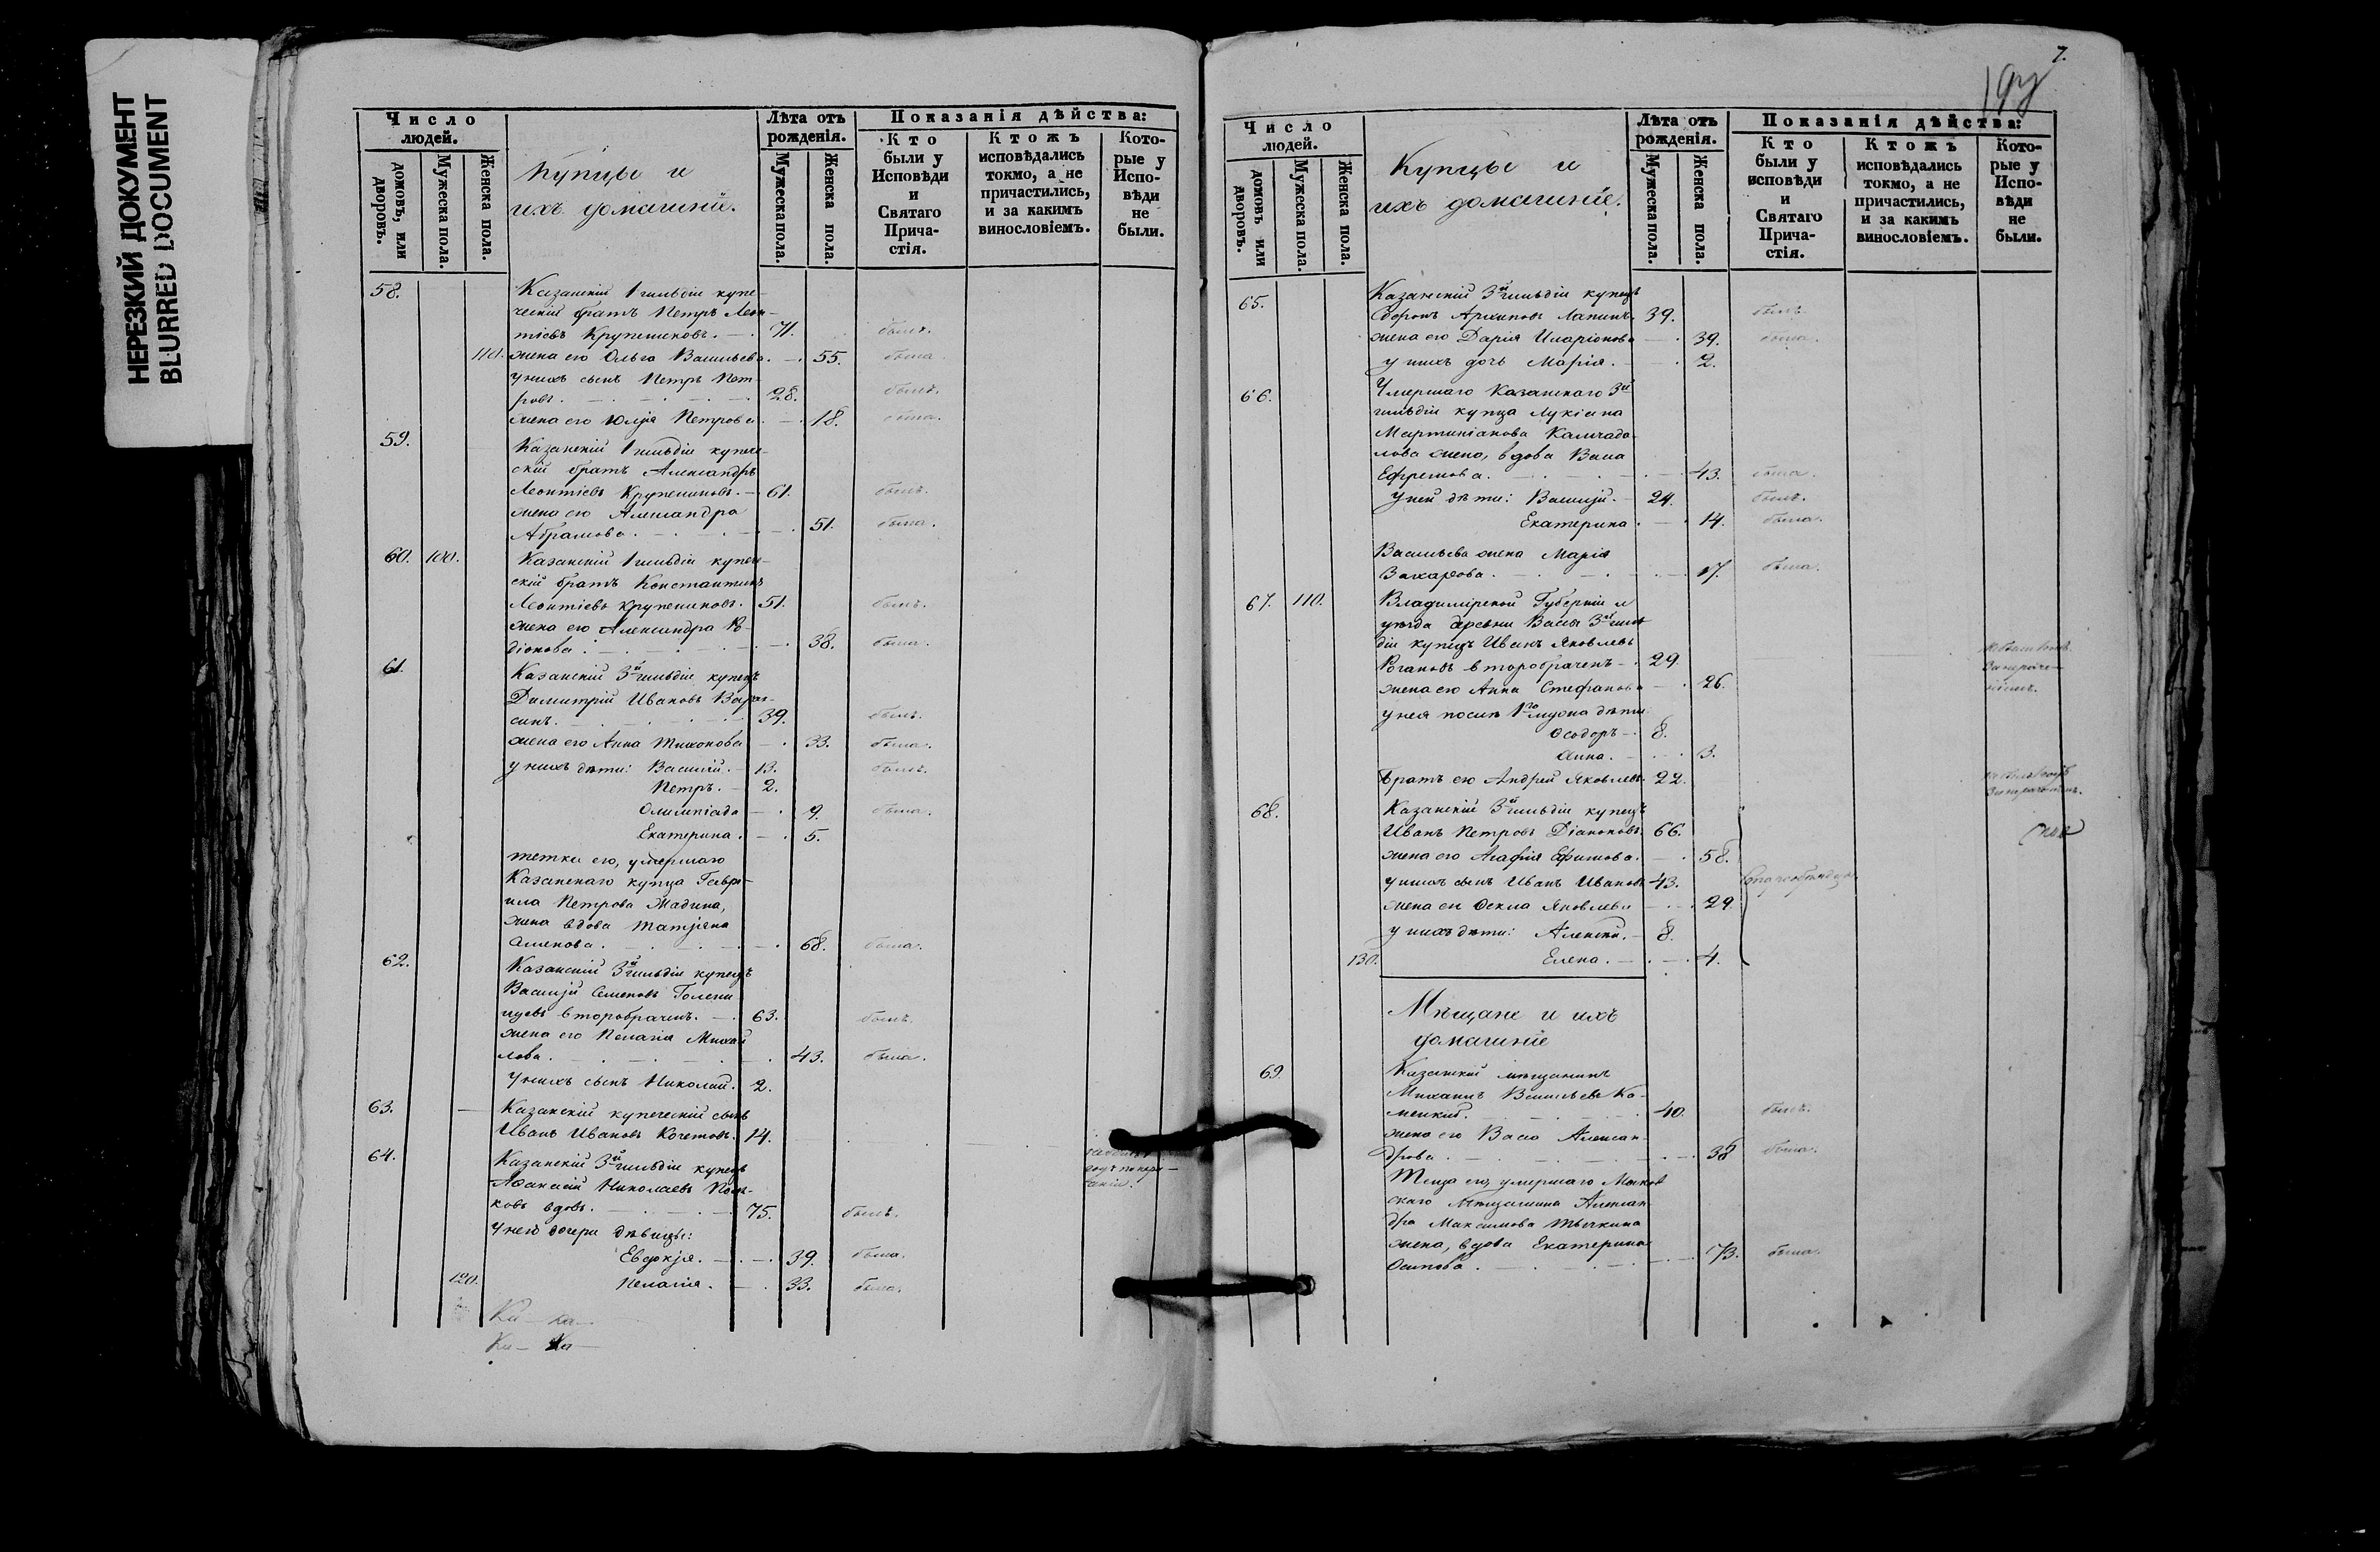 НЕРЕЗКИЙ ДОКУМЕНТ
BLURRED DOCUMENT
Число людей.
домовъ, или дворовъ.
Мужеска пола.
Женска пола.
Купцы и
ихъ домашніе.
Лѣта отъ рожденія.
Мужеска пола.
Женска пола.
Показанія дѣйства:
Кто были у Исповѣди и Святаго Прича-стія.
Ктожъ исповѣдались токмо, а не причастились, и за какимъ винословіемъ.
Кото-рые у Испо-вѣди не были.
58. Казанскій 1 гильдіи купе-
ческій братъ Петръ Леон-
тіевъ Крупениковъ. 71. былъ.
110. жена его Ольга Васильева. 55. была.
у нихъ сынъ Петръ Пет-
ровъ. 28. былъ.
жена его Юлія Петрова. 18. была.
59. Казанскій 1 гильдіи купече-
скій братъ Александръ
Леонтіевъ Крупениковъ. 61. былъ.
жена его Александра
Абрамова. 51. была.
60. 100. Казанскій 1 гильдіи купече-
скій братъ Константинъ
Леонтіевъ Крупениковъ. 51. былъ.
жена его Александра Ро-
діонова. 38. была.
61. Казанскій 3й гильдіи купецъ
Димитрій Ивановъ
39. былъ.
жена его Анна Тихонова 33. была.
у нихъ дѣти: Василій. 13. былъ.
Петръ. 2.
Олимпіада 9. была.
Екатерина. 5.
тетка его, умершаго
Казанскаго купца Гаврі-
ила Петрова
жена вдова Татіяна
Семенова. 68. была.
62. Казанскій 3й гильдіи купецъ
Василій Семеновъ
второбраченъ. 63. былъ.
жена его Пелагія Михай
лова. 43. была.
у нихъ сынъ Николай. 2.
63. Казанскій купеческій сынъ
Иванъ Ивановъ Кочетовъ. 14.
64. Казанскій 3й гильдіи купецъ
Афанасій Николаевъ
вдовъ. 75. былъ.
у него дочери дѣвицы:
Евдокія. 39. была.
120. Пелагія. 33. была.
7.
Число людей.
домовъ или дворовъ.
Мужеска пола.
Женска пола.
Купцы и
ихъ домашніе.
Лѣта отъ рожденія.
Мужеска пола.
Женска пола.
Показанія дѣйства:
Кто были у исповѣди и Святаго Прича-стія.
Ктожъ исповѣдались токмо, а не причастились, и за какимъ винословіемъ.
Кото-рые у Испо-вѣди не были.
65. Казанскій 3й гильдіи купецъ
Архиповъ Лапинъ. 39. былъ.
жена его Дарія Иларіонова 39. была.
у нихъ дочь Марія. 2.
66. Умершаго Казанскаго 3й
гильдіи купца Лукіана
Мартиніанова
жена, вдова Васса
Ефремова. 43. была.
У ней дѣти: Василій. 24. былъ.
Екатерина. 14. была.
Васильева жена Марія
Захарова. 17. была.
67. 110. Владимірской Губерніи и
уѣзда деревни 3й гиль
діи купецъ Иванъ Яковлевъ
второбраченъ 29.
жена его Анна Стефанова 26.
у нея после 1го мужа дѣти:
Ѳеодоръ. 8.
Анна. 3.
Братъ его Андрей Яковлевъ 22.
68. Казанскій 3й гильдіи купецъ
Иванъ Петровъ Діаконовъ. 66.
жена его Агафія Ефимова. 58.
у нихъ сынъ Иванъ Ивановъ 43.
жена его Ѳекла Яковлева 29.
у нихъ дѣти: Алексѣй. 8.
130. Елена. 4.
Мѣщане и ихъ
домашніе
69. Казанскій мѣщанинъ
Михаилъ Васильевъ
40. былъ.
жена его Васса Алексан-
дрова. 38 была.
Теща его, умершаго
Мѣщанина Алексан
дра Максимова
жена, вдова Екатерина
Осипова. 73. была.